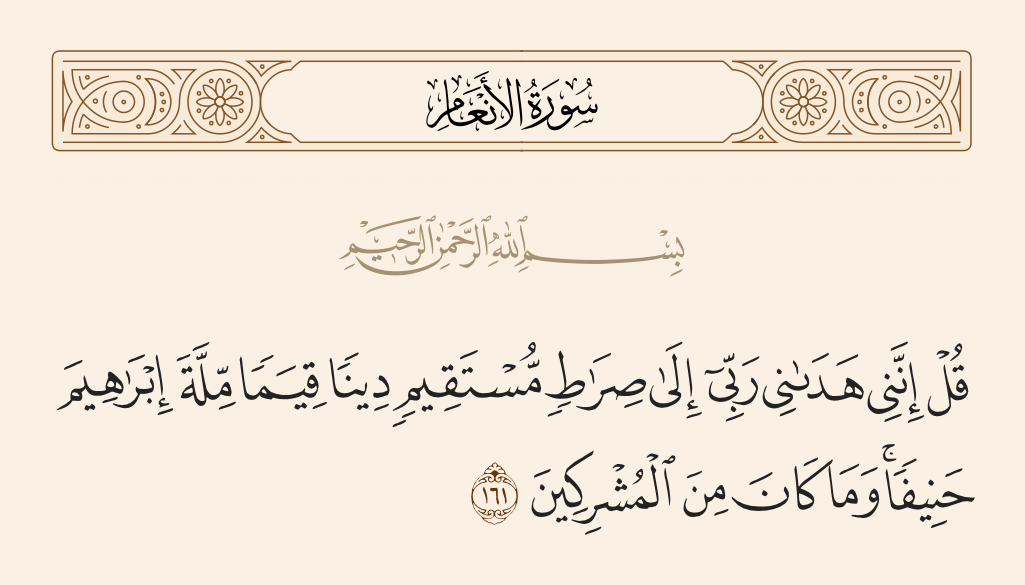 سُورَةُ الأَنْعَامِ
بِسْمِ ٱللَّهِ ٱلرَّحْمَٰنِ ٱلرَّحِيمِ
قُلْ إِنَّنِى هَدَىٰنِى رَبِّىٓ إِلَىٰ صِرَٰطٍ مُّسْتَقِيمٍ دِينًا قِيَمًا مِّلَّةَ إِبْرَٰهِيمَ
حَنِيفًا ۚ وَمَا كَانَ مِنَ ٱلْمُشْرِكِينَ ١٦١